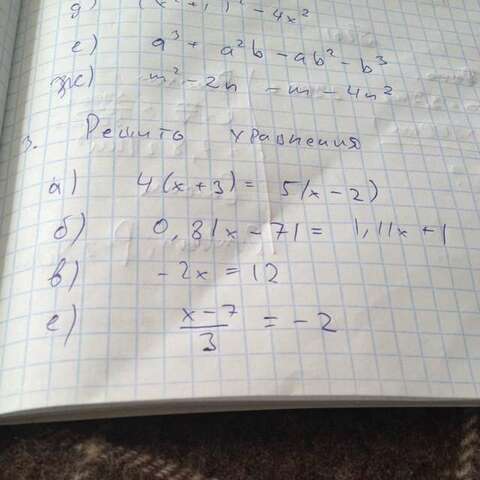 д) (x² + 1)² - 4x²
е) a³ + a²b - ab² - b³
ж) m² - 2n - m - 4n²
3. Решить уравнения
а) 4(x + 3) = 5(x - 2)
б) 0,8(x - 7) = 1,1(x + 1
в) -2x = 12
е) \frac{x-7}{3} = -2